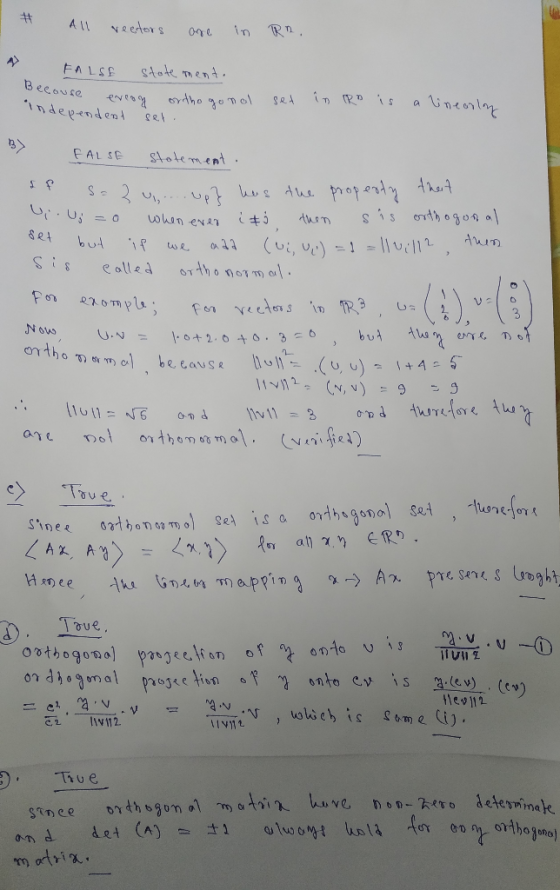 # All vectors are in Rⁿ.
A> FALSE statement.
Because every orthogonal set in Rⁿ is a linearly
independent set.
B> FALSE statement.
If S = {u₁, .... uₚ} has the property that
uᵢ · uⱼ = 0 whenever i ≠ j, then S is orthogonal
set but if we add (uᵢ, uᵢ) = 1 = ||uᵢ||², then
S is called orthonormal.
For example; For vectors in R³, u = (1 2 0), v = (0 0 3)
Now, u.v = 1.0+2.0+0.3 = 0, but they are not
orthonormal, because ||u||² = (u, u) = 1+4 = 5
||v||² = (v, v) = 9 = 9
∴ ||u|| = √5 and ||v|| = 3 and therefore they
are not orthonormal. (verified)
c> True.
Since orthonormal set is a orthogonal set, therefore
⟨Ax, Ay⟩ = ⟨x, y⟩ for all x, y ∈ Rⁿ.
Hence, the linear mapping x → Ax preseres lenght.
d. True.
orthogonal projection of y onto v is y.v/||v||² . v —①
orthogonal projection of y onto cv is y.(cv)/||cv||² . (cv)
= c²/c² . y.v/||v||² . v = y.v/||v||² . v, which is same (i).
True
since orthogonal matrix have non-zero determinate
and det (A) = ±1 always hold for any orthogonal
matrix.